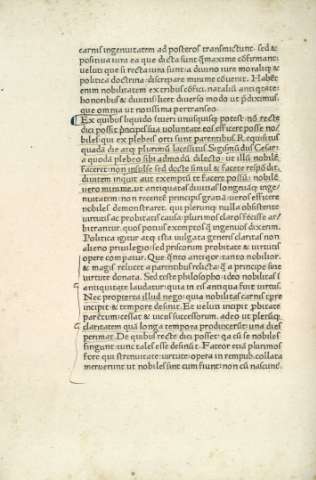 carnis ingenuitatem ad posteros transmictunt. sed &
positiua iura ea que dicta sunt q̃maxime cõfirmant:
ueluti que si recta iura sunt: a diuino iure moraliq; &
politica doctrina discrepare minime cõuenit. Habẽt
enim nobilitatem ex tribus cõfici. nataliũ antiqtate:
honoribus & diuitiis licet diuerso modo ut p̃diximus:
que omnia ut nouissima pertranseo.
Ex quibus liquido fueri unusquisq; potest: nõ recte
dici posse: p̃ncipes sua uoluntate eos efficere posse no/
biles qui ex plebeis orti sunt parentibus. R equisitus
quadã die atq; plurimũ lacessitus Sigismũdus Cesar:
a quodã plebeo sibi admodũ dilecto: ut illũ nobilẽ
faceret: non insulse sed docte simul & facete respõdit.
diuitem inquit aut exemptũ te facere possũ: nobilẽ
uero minime. ut antiquatas diuitias longeuãq; inge/
nuitatem non recentẽ principis gratiã ueros efficere
nobiles demonstraret. qui plerunq; nulla obsistente
uirtutis ac probitatis causa: plurimos claros fecisse ar/
bitrantur. quos potius exemptos q̃ ingenuos dixerim.
Politica igitur atq; ista uulgata generis claritas non
alieno priuilegio: sed priscorum probitate & uirtutis
opere comparatur. Que q̃nto antiqor: tanto nobilior.
& magis relucet a parentibus relicta: q̃ a principe sine
uirtute donata. Sed teste philosopho: ideo nobilitas ĩ
antiquitate laudatur: quia in eis antiqua fuit uirtus.
Nec propterea illud nego: quia nobilitas carnis & pre
incipit & tempore desinit. Et uelut incipit p̃bitate
parentum: cessat & uicus successorum. adeo ut plerũq;
claritatem quã longa tempora produxerũt: una dies
perimat. De quibus recte dici posset: qa cũ se nobiles
fingunt: tunc tales esse desinũt. Fateor etiã plurimos
fore qui strenuitate: uirtute: opera in rempub. collata
meruerunt ut nobiles sint cum fiunt: non cũ nascunt.